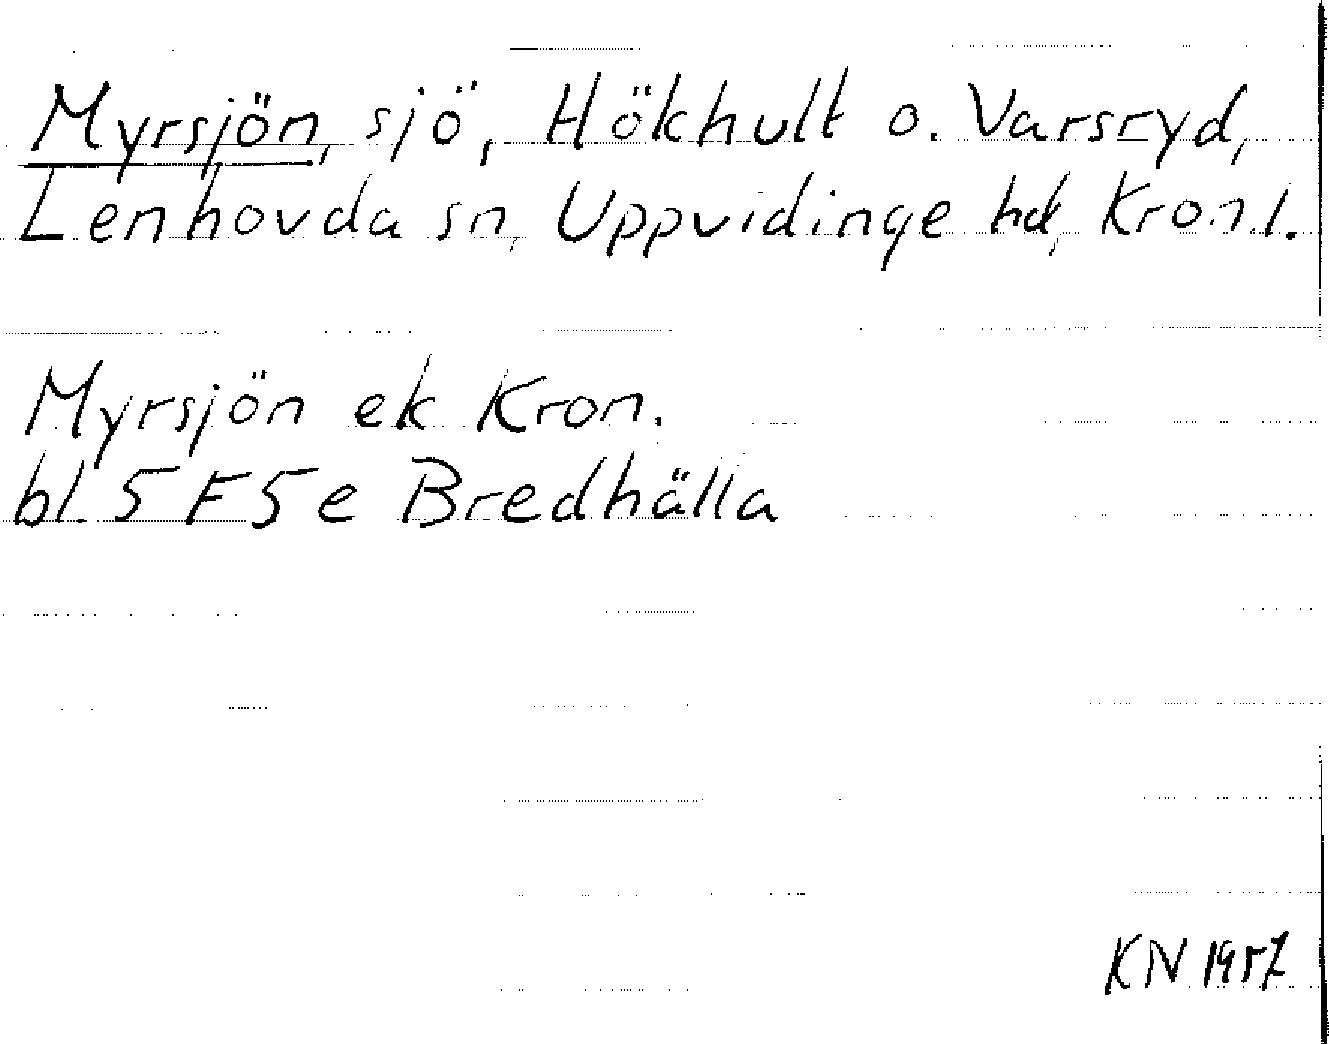 Myrsjön, sjö, Hökhult o. Varsryd,
Lenhovda sn, Uppvidinge hd, Kron.l.
Myrsjön ek Kron.
bl. 5 F 5 e Bredhälla
KN 1957